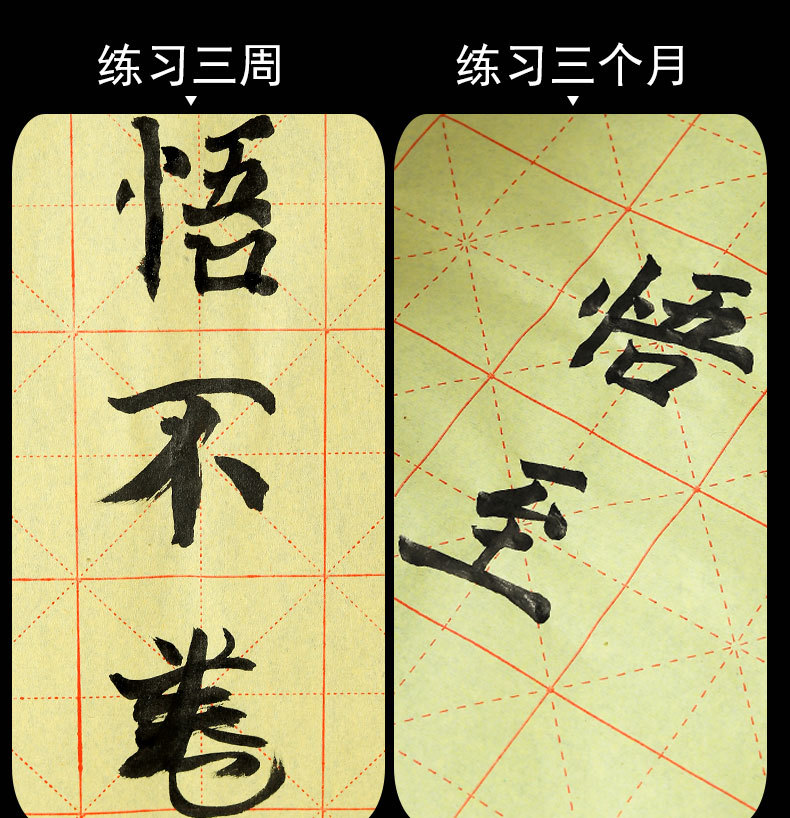 练习三周
悟
不
练习三个月
悟
至